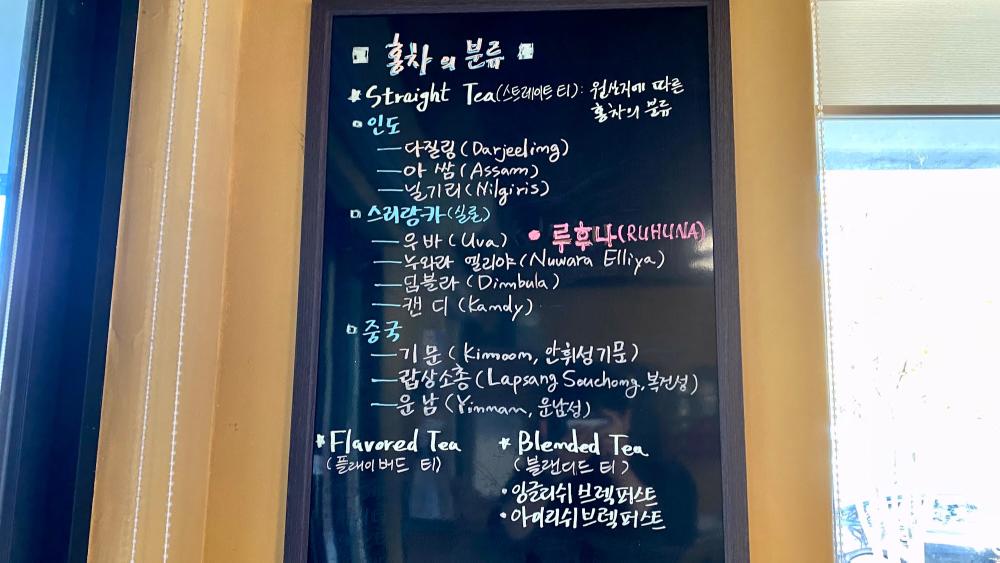 홍차의 분류
* Straight Tea(스트레이트 티): 원산지에 따른
홍차의 분류
인도
— 다질링(Darjeeling)
— 아쌈(Assam)
— 닐기리(Nilgiris)
스리랑카(실론)
— 우바(Uva) • 루후나(RUHUNA)
— 누와라 엘리야(Nuwara Elliya)
— 딤블라(Dimbula)
— 캔디(Kandy)
중국
— 기문(Kimoom, 안휘성기문)
— 랍상소총(Lapsang Souchong, 복건성)
— 운남(Yinnan, 운남성)
* Flavored Tea
(플레이버드 티)
* Blended Tea
(블랜디드 티)
• 잉글리쉬 브렉퍼스트
• 아이리쉬 브렉퍼스트